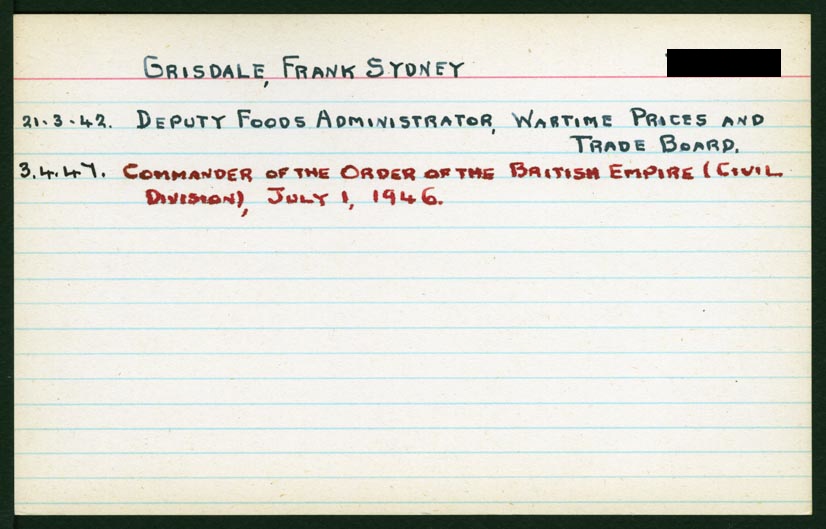 GRISDALE, FRANK SYDNEY
21.3.42. DEPUTY FOODS ADMINISTRATOR, WARTIME PRICES AND
TRADE BOARD.
3.4.47. COMMANDER OF THE ORDER OF THE BRITISH EMPIRE (CIVIL
DIVISION), JULY 1, 1946.